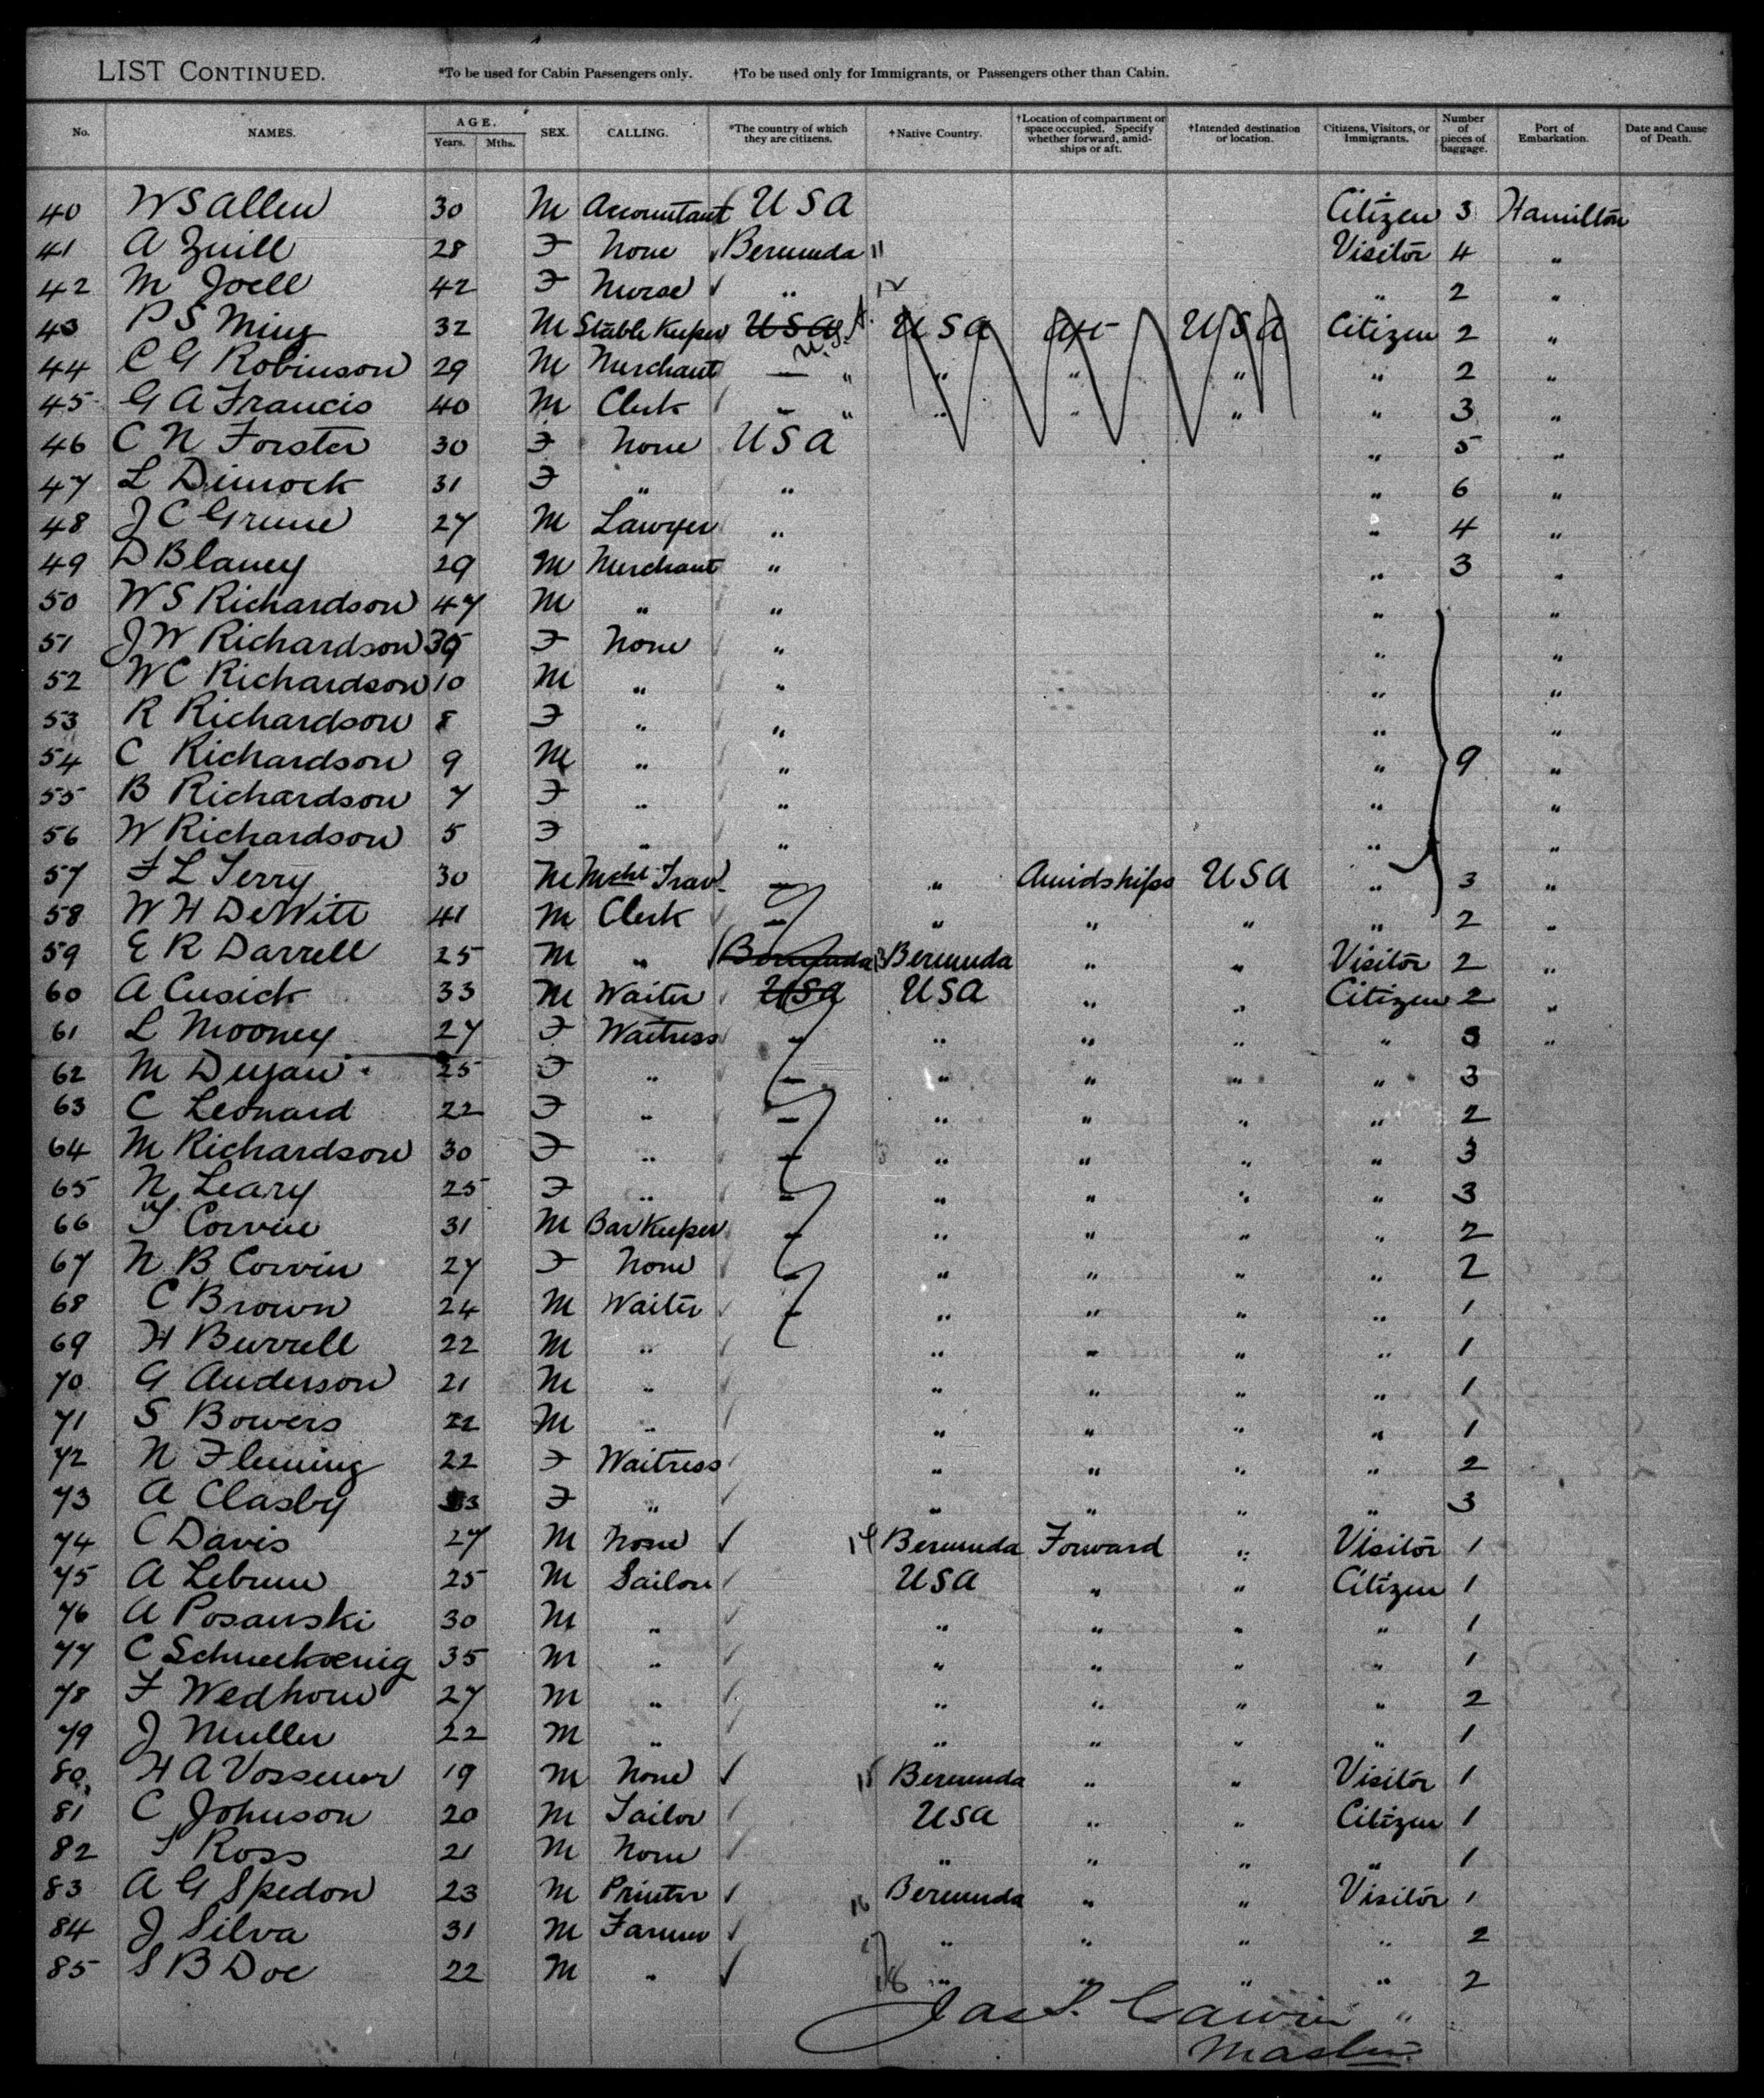 LIST CONTINUED. *To be used for Cabin Passengers only. †To be used only for Immigrants, or Passengers other than Cabin.
No. NAMES. AGE. Years. Mths. SEX. CALLING. *The country of which they are citizens. †Native Country. †Location of compartment or space occupied. Specify whether forward, amidships or aft. †Intended destination or location. Citizens, Visitors, or Immigrants. Number of pieces of baggage. Port of Embarkation. Date and Cause of Death.
40 W S Allen 30 M Accountant USA Citizen 3 Hamilton
41 A Zuill 28 F None Bermuda 11 Visitor 4 "
42 M Joell 42 F Nurse " 12 " 2 "
43 P S Ming 32 M Stable Keeper USA U.S.A. USA aft USA Citizen 2 "
44 C G Robinson 29 M Merchant " " " " " 2 "
45 G A Francis 40 M Clerk " " " " " 3 "
46 C N Forster 30 F None USA " 5 "
47 L Dimock 31 F " " " 6 "
48 J C Grune 27 M Lawyer " " 4 "
49 D Blaney 29 M Merchant " " 3 "
50 W S Richardson 47 M " " " "
51 J W Richardson 39 F None " " "
52 W C Richardson 10 M " " " "
53 R Richardson 8 F " " " "
54 C Richardson 9 M " " " 9 "
55 B Richardson 7 F " " " "
56 W Richardson 5 F " " " "
57 F L Terry 30 M Mcht Trav. " " Amidships USA " 3 "
58 W H DeWitt 41 M Clerk " " " " " 2 "
59 E R Darrell 25 M " Bermuda 13 Bermuda " " Visitor 2 "
60 A Cusick 33 M Waiter USA USA " " Citizen 2 "
61 L Mooney 27 F Waitress " " " " " 3 "
62 M Dugan 25 F " " " " " " 3
63 C Leonard 22 F " " " " " " 2
64 M Richardson 30 F " " " " " " 3
65 N Leary 25 F " " " " " " 3
66 T Corvin 31 M Bar Keeper " " " " " 2
67 N B Corvin 27 F None " " " " " 2
68 C Brown 24 M Waiter " " " " " 1
69 H Burrell 22 M " " " " " 1
70 G Anderson 21 M " " " " " 1
71 S Bowers 22 M " " " " " 1
72 N Fleming 22 F Waitress " " " " 2
73 A Clasby F " " " " " 3
74 C Davis 27 M None 14 Bermuda Forward " Visitor 1
75 A Lebrun 25 M Sailor USA " " Citizen 1
76 A Posanski 30 M " " " " " 1
77 C Schneekoenig 35 M " " " " " 1
78 F Wedhorn 27 M " " " " " 2
79 J Muller 22 M " " " " " 1
80 H A Vossenor 19 M None 15 Bermuda " " Visitor 1
81 C Johnson 20 M Tailor USA " " Citizen 1
82 T Ross 21 M None " " " " 1
83 A G Spedon 23 M Printer 16 Bermuda " " Visitor 1
84 J Silva 31 M Farmer 17 " " " " 2
85 S B Doe 22 M " 18 " " " " 2
Master